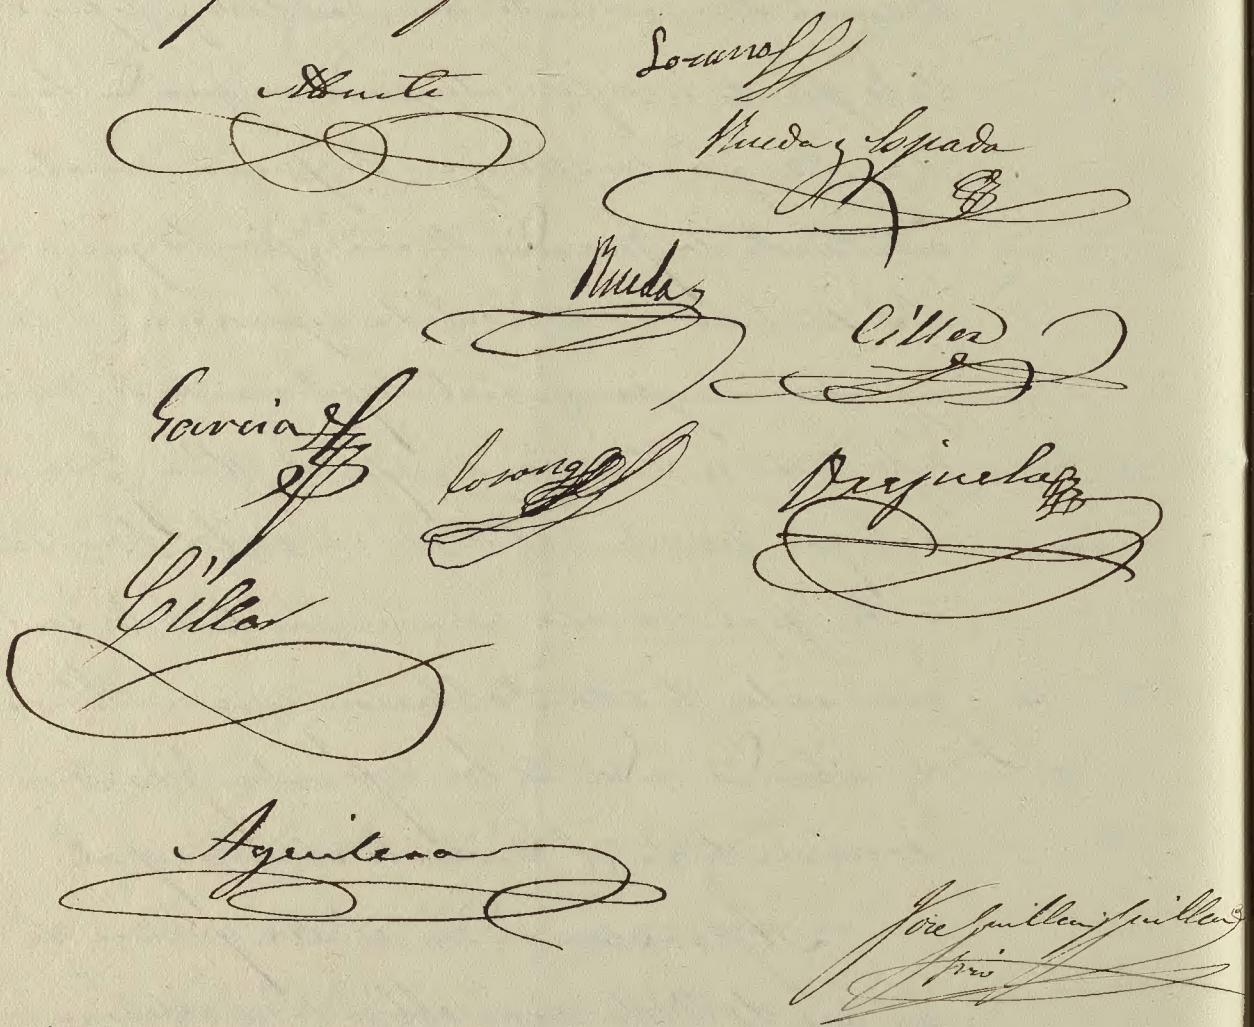 Lozano
Rueda y Espada
Rueda
Ciller
Garcia
Lozano
Orejuela
Ciller
Aguilera
Jose Guillen Guillen
Srio